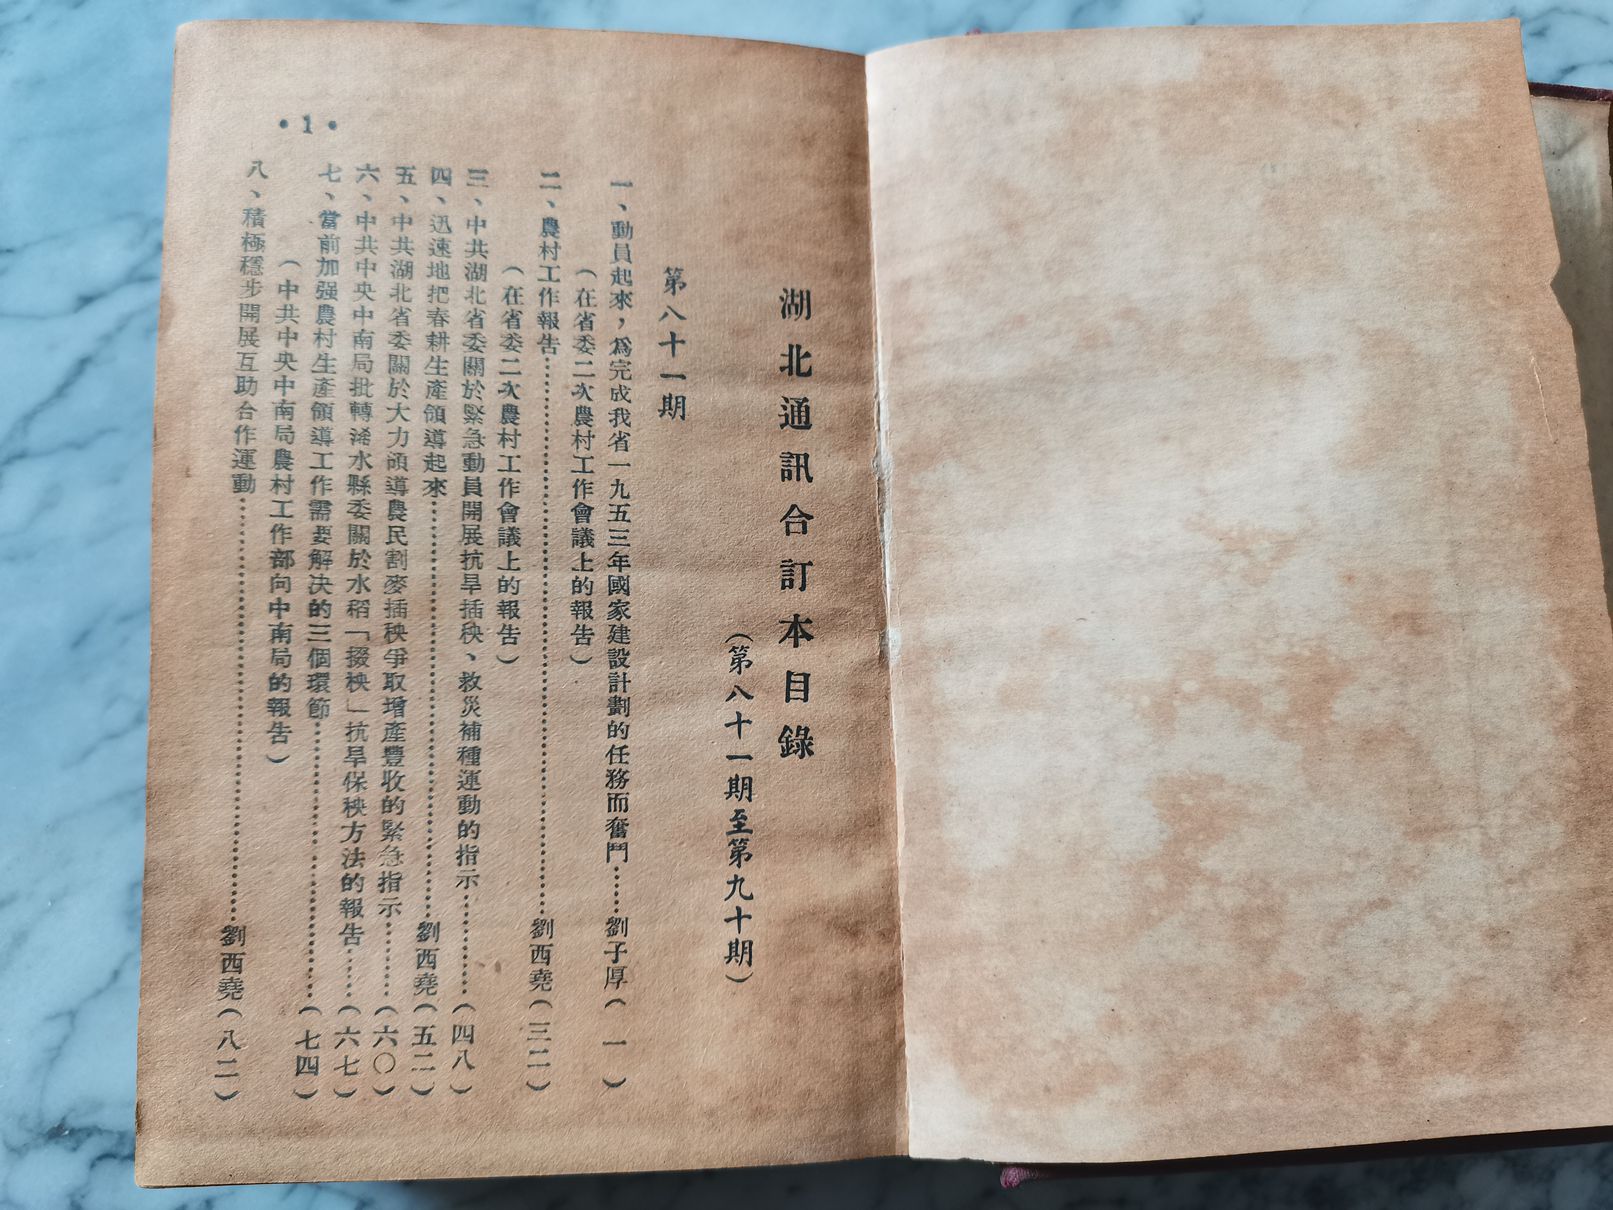 湖北通訊合訂本目錄
（第八十一期至第九十期）
第八十一期
一、動員起來，爲完成我省一九五三年國家建設計劃的任務而奮鬥……劉子厚（一）
（在省委二次農村工作會議上的報告）
二、農村工作報告……劉西堯（三二）
（在省委二次農村工作會議上的報告）
三、中共湖北省委關於緊急動員開展抗旱插秧、救災補種運動的指示……（四八）
四、迅速地把春耕生產領導起來……劉西堯（五二）
五、中共湖北省委關於大力領導農民割麥插秧爭取增產豐收的緊急指示……（六〇）
六、中共中央中南局批轉浠水縣委關於水稻「掇秧」抗旱保秧方法的報告……（六七）
七、當前加强農村生產領導工作需要解決的三個環節……（七四）
（中共中央中南局農村工作部向中南局的報告）
八、積極穩步開展互助合作運動……劉西堯（八二）
•1•